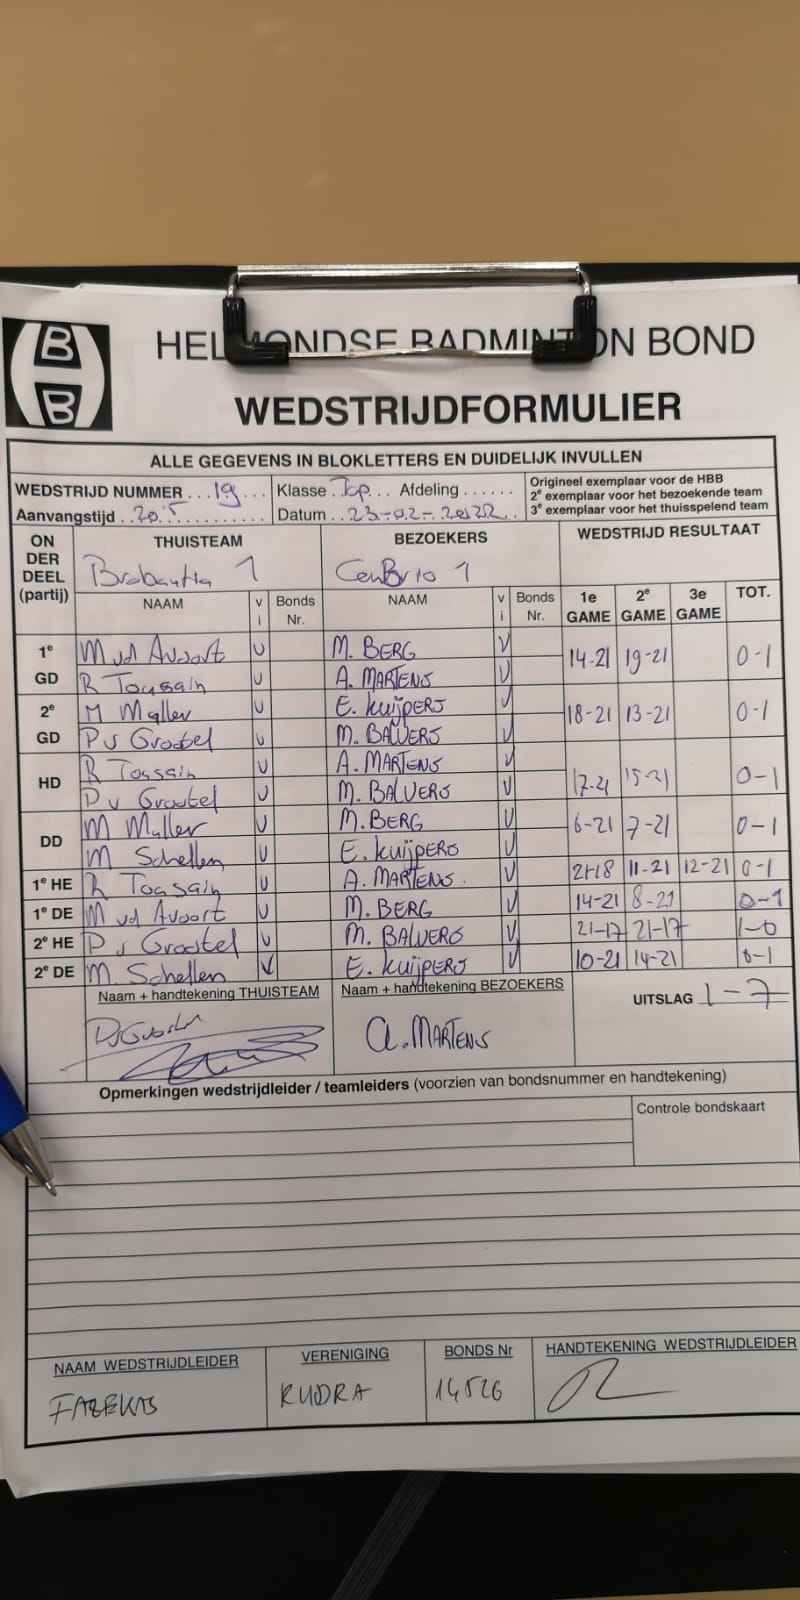 B
H
B
HELMONDSE BADMINTON BOND
WEDSTRIJDFORMULIER
ALLE GEGEVENS IN BLOKLETTERS EN DUIDELIJK INVULLEN
WEDSTRIJD NUMMER ...19... Klasse Top... Afdeling ......
Origineel exemplaar voor de HBB
2e exemplaar voor het bezoekende team
3e exemplaar voor het thuisspelend team
Aanvangstijd ..20.15............ Datum ..23-02-2022..
ON DER DEEL (partij) THUISTEAM BEZOEKERS WEDSTRIJD RESULTAAT
Brabantia 1 ConBrio 1
NAAM v i Bonds Nr. NAAM v i Bonds Nr. 1e GAME 2e GAME 3e GAME TOT.
1e GD M vd Avoort V M. BERG V 14-21 19-21 0-1
R Tousain V A. MARTENS V
2e GD M Muller V E. kuijpers V 18-21 13-21 0-1
P v Grootel V M. BALVERS V
HD R Tousain V A. MARTENS V 17-21 15-21 0-1
P v Grootel V M. BALVERS V
DD M Muller V M. BERG V 6-21 7-21 0-1
M Schellen V E. kuijpers V
1e HE R Tousain V A. MARTENS. V 21-18 11-21 12-21 0-1
1e DE M vd Avoort V M. BERG V 14-21 8-21 0-1
2e HE P v Grootel V M. BALVERS V 21-17 21-17 1-0
2e DE M. Schellen V E. kuijpers V 10-21 14-21 0-1
Naam + handtekening THUISTEAM Naam + handtekening BEZOEKERS UITSLAG 1-7
PvGrootel A. MARTENS
Opmerkingen wedstrijdleider / teamleiders (voorzien van bondsnummer en handtekening)
Controle bondskaart
NAAM WEDSTRIJDLEIDER VERENIGING BONDS Nr HANDTEKENING WEDSTRIJDLEIDER
FAZEKAS RUDRA 14526